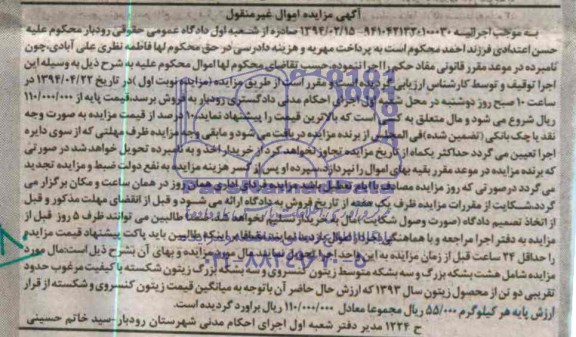 آگهی مزایده اموال غیرمنقول
به موجب اجرائیه ۹۴۱۰۴۲۱۳۲۰۱۰۰۰۳۰-۱۳۹۴/۰۲/۱۵ صادره از شعبه اول دادگاه عمومی حقوقی رودبار محکوم علیه
حسن اعتدادی فرزند احمد محکوم است به پرداخت مهریه و هزینه دادرسی در حق محکوم لها فاطمه نظری علی آبادی، چون
نامبرده در موعد مقرر قانونی مفاد حکم را اجرا ننموده، حسب تقاضای محکوم لها اموال محکوم علیه به شرح ذیل به وسیله این
اجرا توقیف و توسط کارشناس ارزیابی گردیده است و مقرر است از طریق مزایده (مزایده نوبت اول) در تاریخ ۱۳۹۴/۰۴/۲۲ در
ساعت ۱۰ صبح روز دوشنبه در محل شعبه اول اجرای احکام مدنی دادگستری رودبار به فروش برسد، قیمت پایه از ۱۱۰/۰۰۰/۰۰۰
ریال شروع می شود و مال متعلق به کسی است که بالاترین قیمت را پیشنهاد نماید، ۱۰ درصد از قیمت مزایده به صورت وجه
نقد یا چک بانکی (تضمین شده) فی المجلس از برنده مزایده دریافت می شود و مابقی وجه مزایده ظرف مهلتی که از سوی دایره
اجرا تعیین می گردد حداکثر یکماه از تاریخ مزایده تجاوز نخواهد کرد از خریدار اخذ و به نامبرده تحویل خواهد شد در صورتی
که برنده مزایده در موعد مقرر بقیه بهای اموال را نپردازد سپرده او پس از کسر هزینه مزایده به نفع دولت ضبط و مزایده تجدید
می گردد درصورتی که روز مزایده مصادف با ایام تعطیل باشد مزایده فردای اداری همان روز در همان ساعت و مکان برگزار می
گردد، شکایت از مقررات مزایده ظرف یک هفته از تاریخ فروش به دادگاه ارائه می شود و قبل از انقضای مهلت مذکور و قبل
از اتخاذ تصمیم دادگاه (صورت وصول شکایت) مال به خریدار تسلیم نخواهد شد، طالبین می توانند ظرف ۵ روز قبل از
مزایده به دفتر اجرا مراجعه و با هماهنگی اجرا از اموال بازدید نمایند، طالبین باید پاکت پیشنهاد قیمت مزایده
را حداقل ۲۴ ساعت قبل از زمان مزایده به این واحد اجرا تحویل نمایند، مال مورد مزایده و بهای آن بشرح ذیل است، مال مورد
مزایده شامل هشت بشکه بزرگ و سه بشکه متوسط زیتون کنسروی و سه بشکه بزرگ زیتون شکسته با کیفیت مرغوب حدود
تقریبی دو تن از محصول زیتون سال ۱۳۹۳ که ارزش حال حاضر آن با توجه به میانگین قیمت زیتون کنسروی و شکسته از قرار
ارزش پایه هر کیلوگرم ۵۵/۰۰۰ ریال مجموعا معادل ۱۱۰/۰۰۰/۰۰۰ ریال براورد گردیده است.
ح ۱۲۲۴ مدیر دفتر شعبه اول اجرای احکام مدنی شهرستان رودبار-سید خاتم حسینی